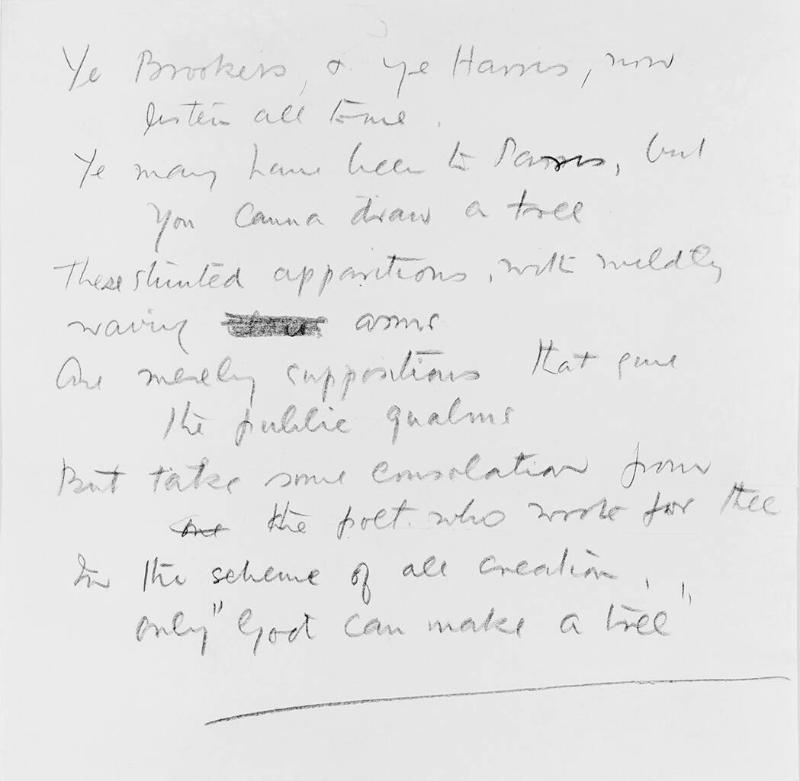 Ye Brookers, & ye Harris, now
listen all to me.
Ye many have been to Parris, but
You Canna draw a tree
These stunted apparitions, with wildly
waving arms
Are merely suppositions that give
the public qualms
But take some consolation from
one the poet who wrote for thee
In the scheme of all creation,
only "God can make a tree"